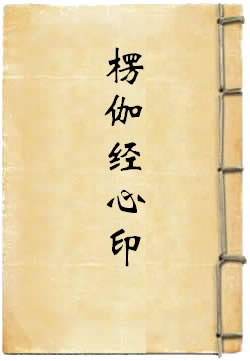 楞伽经心印